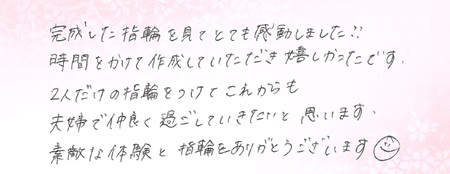 完成した指輪を見てとても感動しました!!
時間をかけて作成していただき嬉しかったです.
2人だけの指輪をつけてこれからも
夫婦で仲良く過ごしていきたいと思います.
素敵な体験と指輪をありがとうございます